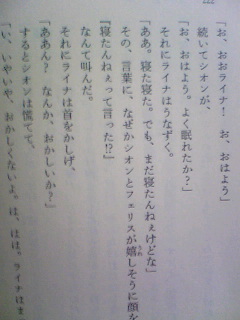 「お、おおライナ！　お、おはよう」
続いてシオンが、
「お、おはよう。よく眠れたか？」
それにライナはうなずく。
「ああ。寝た寝た。でも、まだ寝たんねぇけどな」
その、言葉に、なぜかシオンとフェリスが嬉しそうに顔を
うれ
『寝たんねぇって言った!?』
なんて叫んだ。
それにライナは首をかしげ、
「ああん？　なんか、おかしいか？」
するとシオンは慌てて、
「い、いやいや、おかしくないよ。は、はは。ライナはま